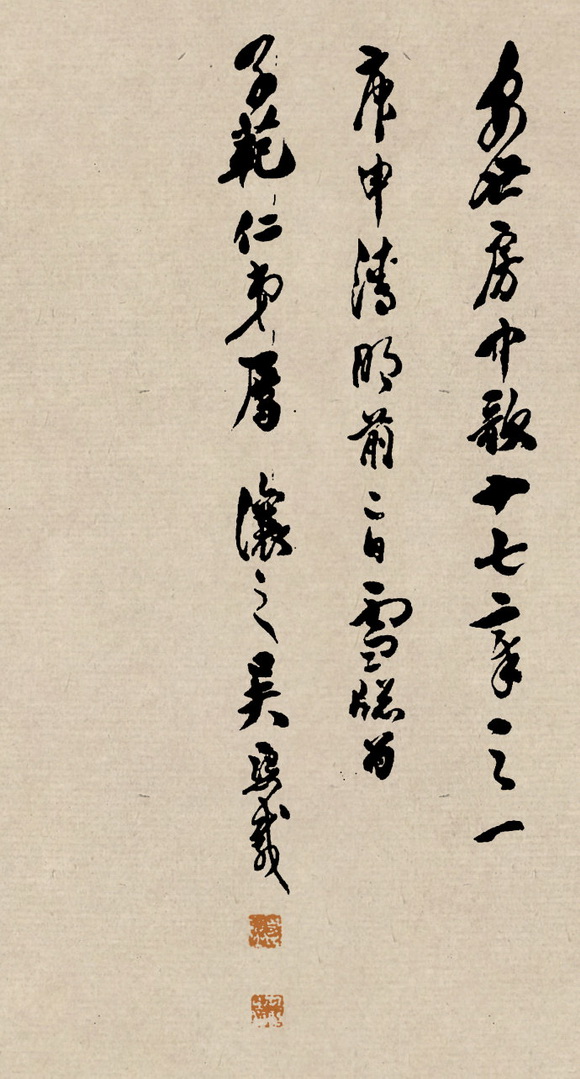 安世房中歌十七章之一
庚申清明前二日雪牕
子範仁弟屬 讓之吳熙載